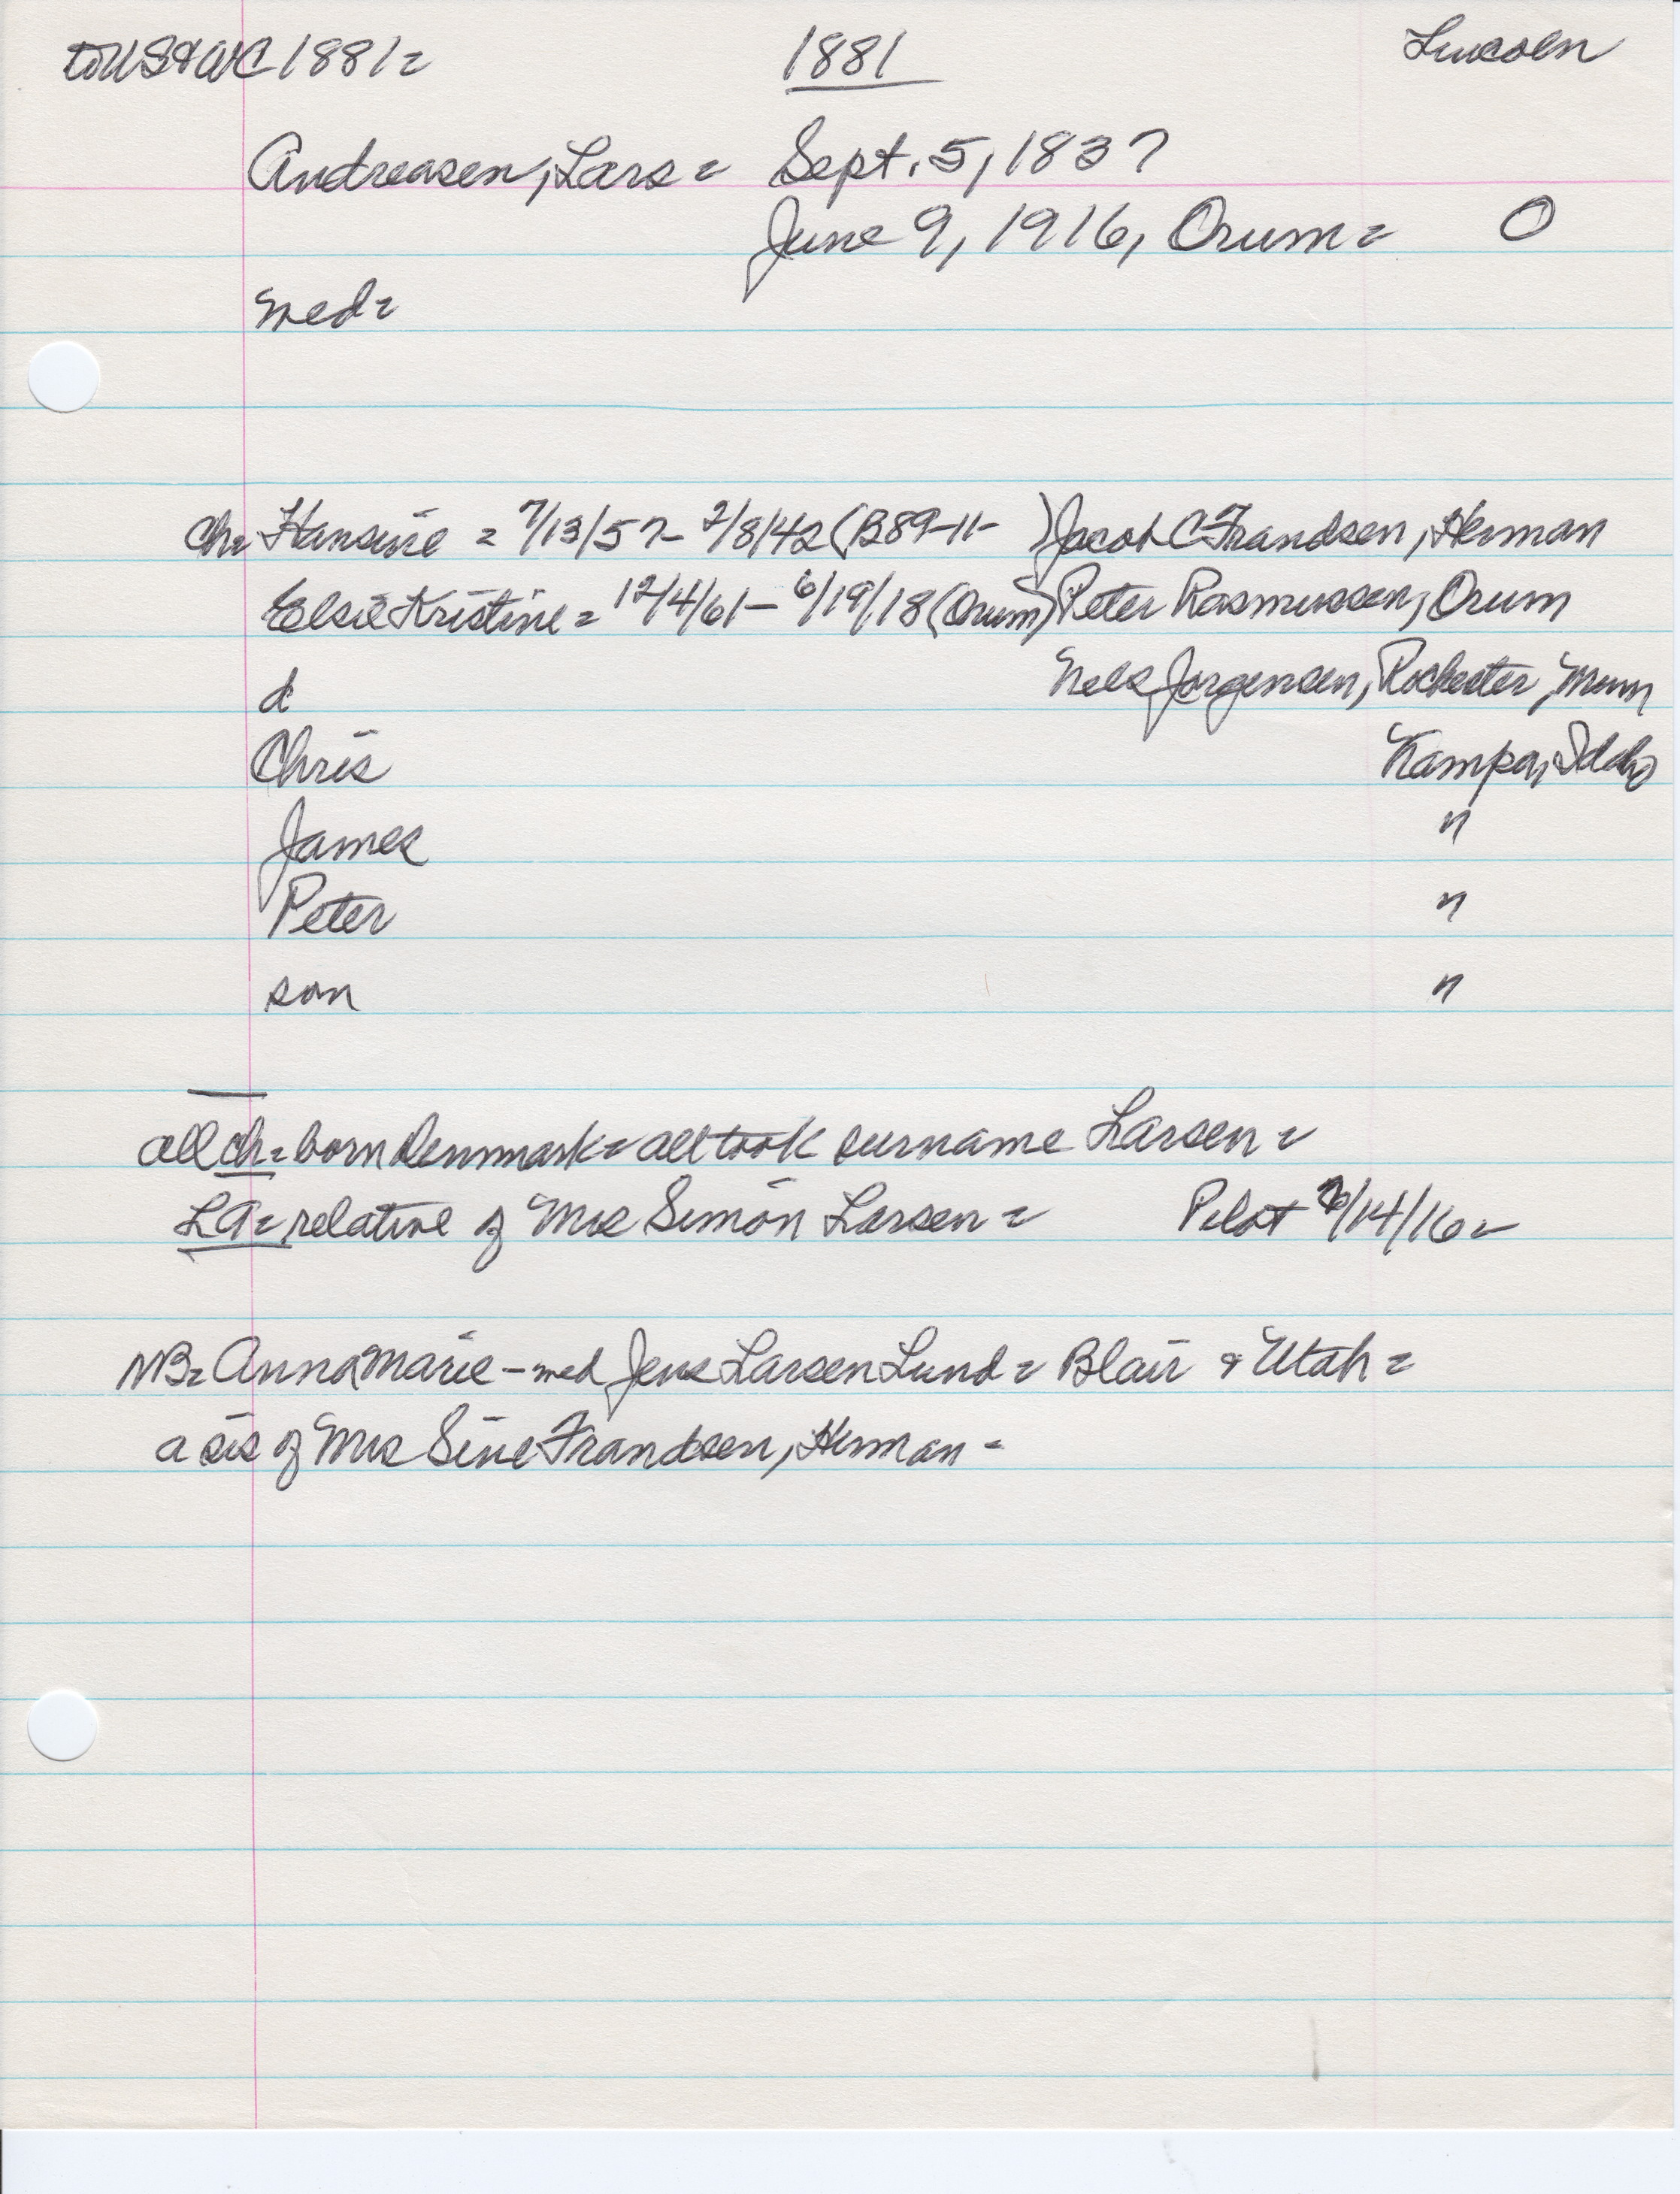 to US & WC 1881= 1881 Lincoln
Andreasen, Lars = Sept. 5, 1837
June 9, 1916, Orum = O
med =
ch= Hansine = 7/13/57- 2/8/42 (B89-11- ) Jacob C Frandsen, Herman
Elsie Kristine = 12/4/61- 6/19/18 (Orum) Peter Rasmussen, Orum
d Nels Jorgensen, Rochester, Minn
Chris Nampa, Idaho
James "
Peter "
son "
all ch= born Denmark = all took surname Larsen =
LA= relative of Mrs Simon Larsen = Pilot 6/14/16=
NB= Anna Marie - med Jens Larsen Lund = Blair & Utah =
a sis of Mrs Sine Frandsen, Herman -